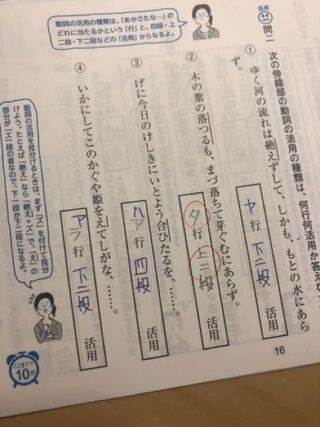 応用
問二 次の傍線部の動詞の活用の種類は、何行何活用か答えな
動詞の活用の種類は、「あかさたな…」の
どれに当たるかという「行」と、四段・上
二段・下二段などの「活用」からなるよ。
① ゆく河の流れは絶えずして、しかも、もとの水にあら
ず。
ヤ行 下二段 活用
② 木の葉の落つるも、まづ落ちて芽ぐむにあらず。
タ行 上二段 活用
③ げに今日のけしきにいとよう合ひたるを、……。
ハ行 四段 活用
④ いかにしてこのかぐや姫をえてしがな、……。
ア行 下二段 活用
動詞の活用を見分けるときは、まず「ズ」を付けて見分
けよう。たとえば「絶え」なら「絶え+ズ」で、「え」の
部分が「エ」段の音なので、下二段か下二段になるよ。
ここまでで
10分
16